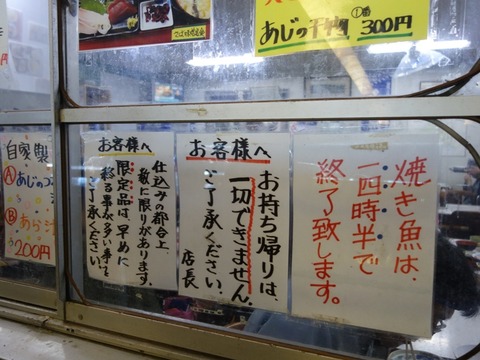 あじの干物
①番
300円
焼き魚は、
一四時半で
終了致します。
お客様へ
お持ち帰りは、
一切できません。
ご了承ください。
店長
お客様へ
仕込みの都合上、
数に限りがあります。
限定品は、早めに
終る事が多い事で
ご了承ください。
自家製
Ⓐあじの
Ⓑあら
200円